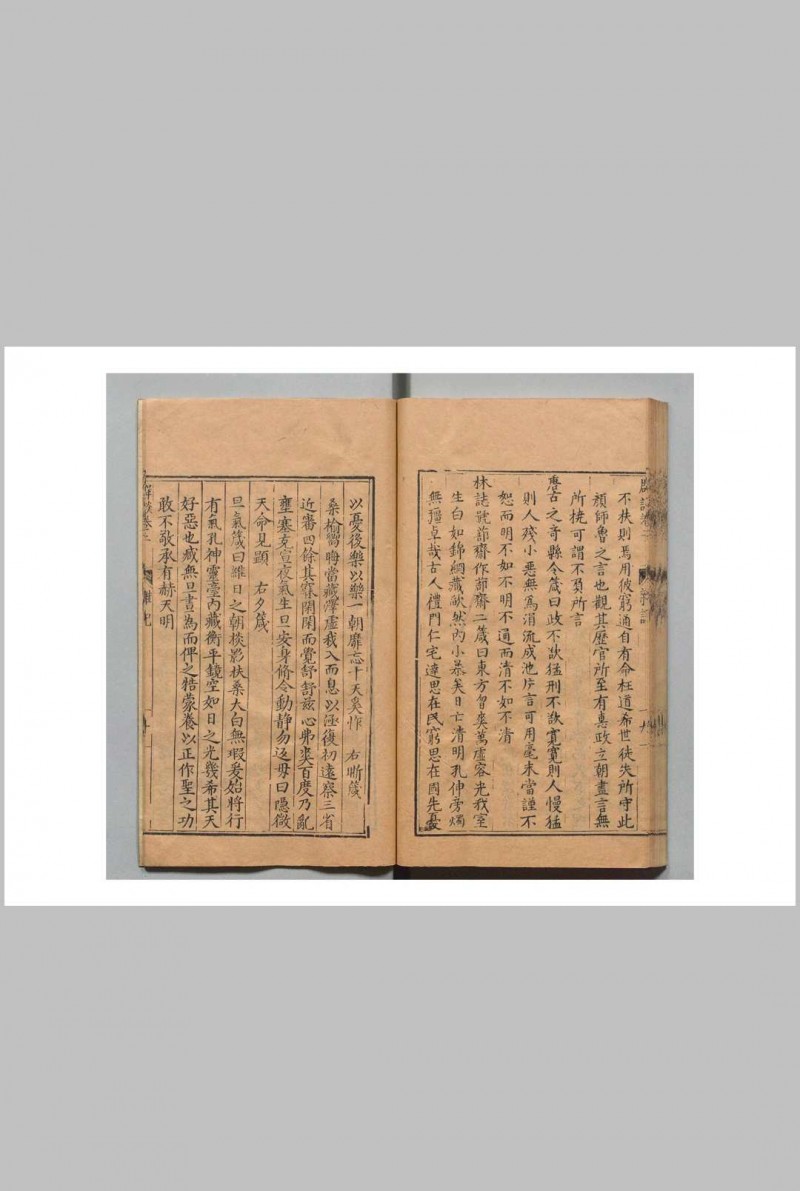 不扶則焉用彼窮通自有命枉道希世徒失所守此
顏師魯之言也觀其歷官所至有惠政立朝盡言無
所撓可謂不負所言
唐古之奇縣令箴曰政不欲猛刑不欲寬寬則人慢猛
則人殘小惡無為涓流成池片言可用毫末當謹不
恕而明不如不明不通而清不如不清
林誌號蔀齋作蔀齋二箴曰東方曾矣萬虛容光我室
生白如錦綱藏歘然內小暴矣日亡清明孔伸旁燭
無疆卓哉古人禮門仁宅達思在民窮思在固先憂
以憂後樂以樂一朝靡忘十天奚怍 右晰箴
桑榆嚮晦當藏澤虛我入而息以涵復初遠察三省
近審四餘其寤閑閑而覺舒舒茲心弗爽百度乃亂
壅塞充宣夜氣生旦安身脩令動靜勿返毋曰隱微
天命見顯 右夕箴
旦氣箴曰維日之朝棪影扶桑大白無瑕爰始將行
有氣孔神靈臺內藏衡平鏡空如日之光幾希其天
好惡也臧無旦晝為而俾之牿蒙養以正作聖之功
敢不敬承有赫天明
卷三
雜記